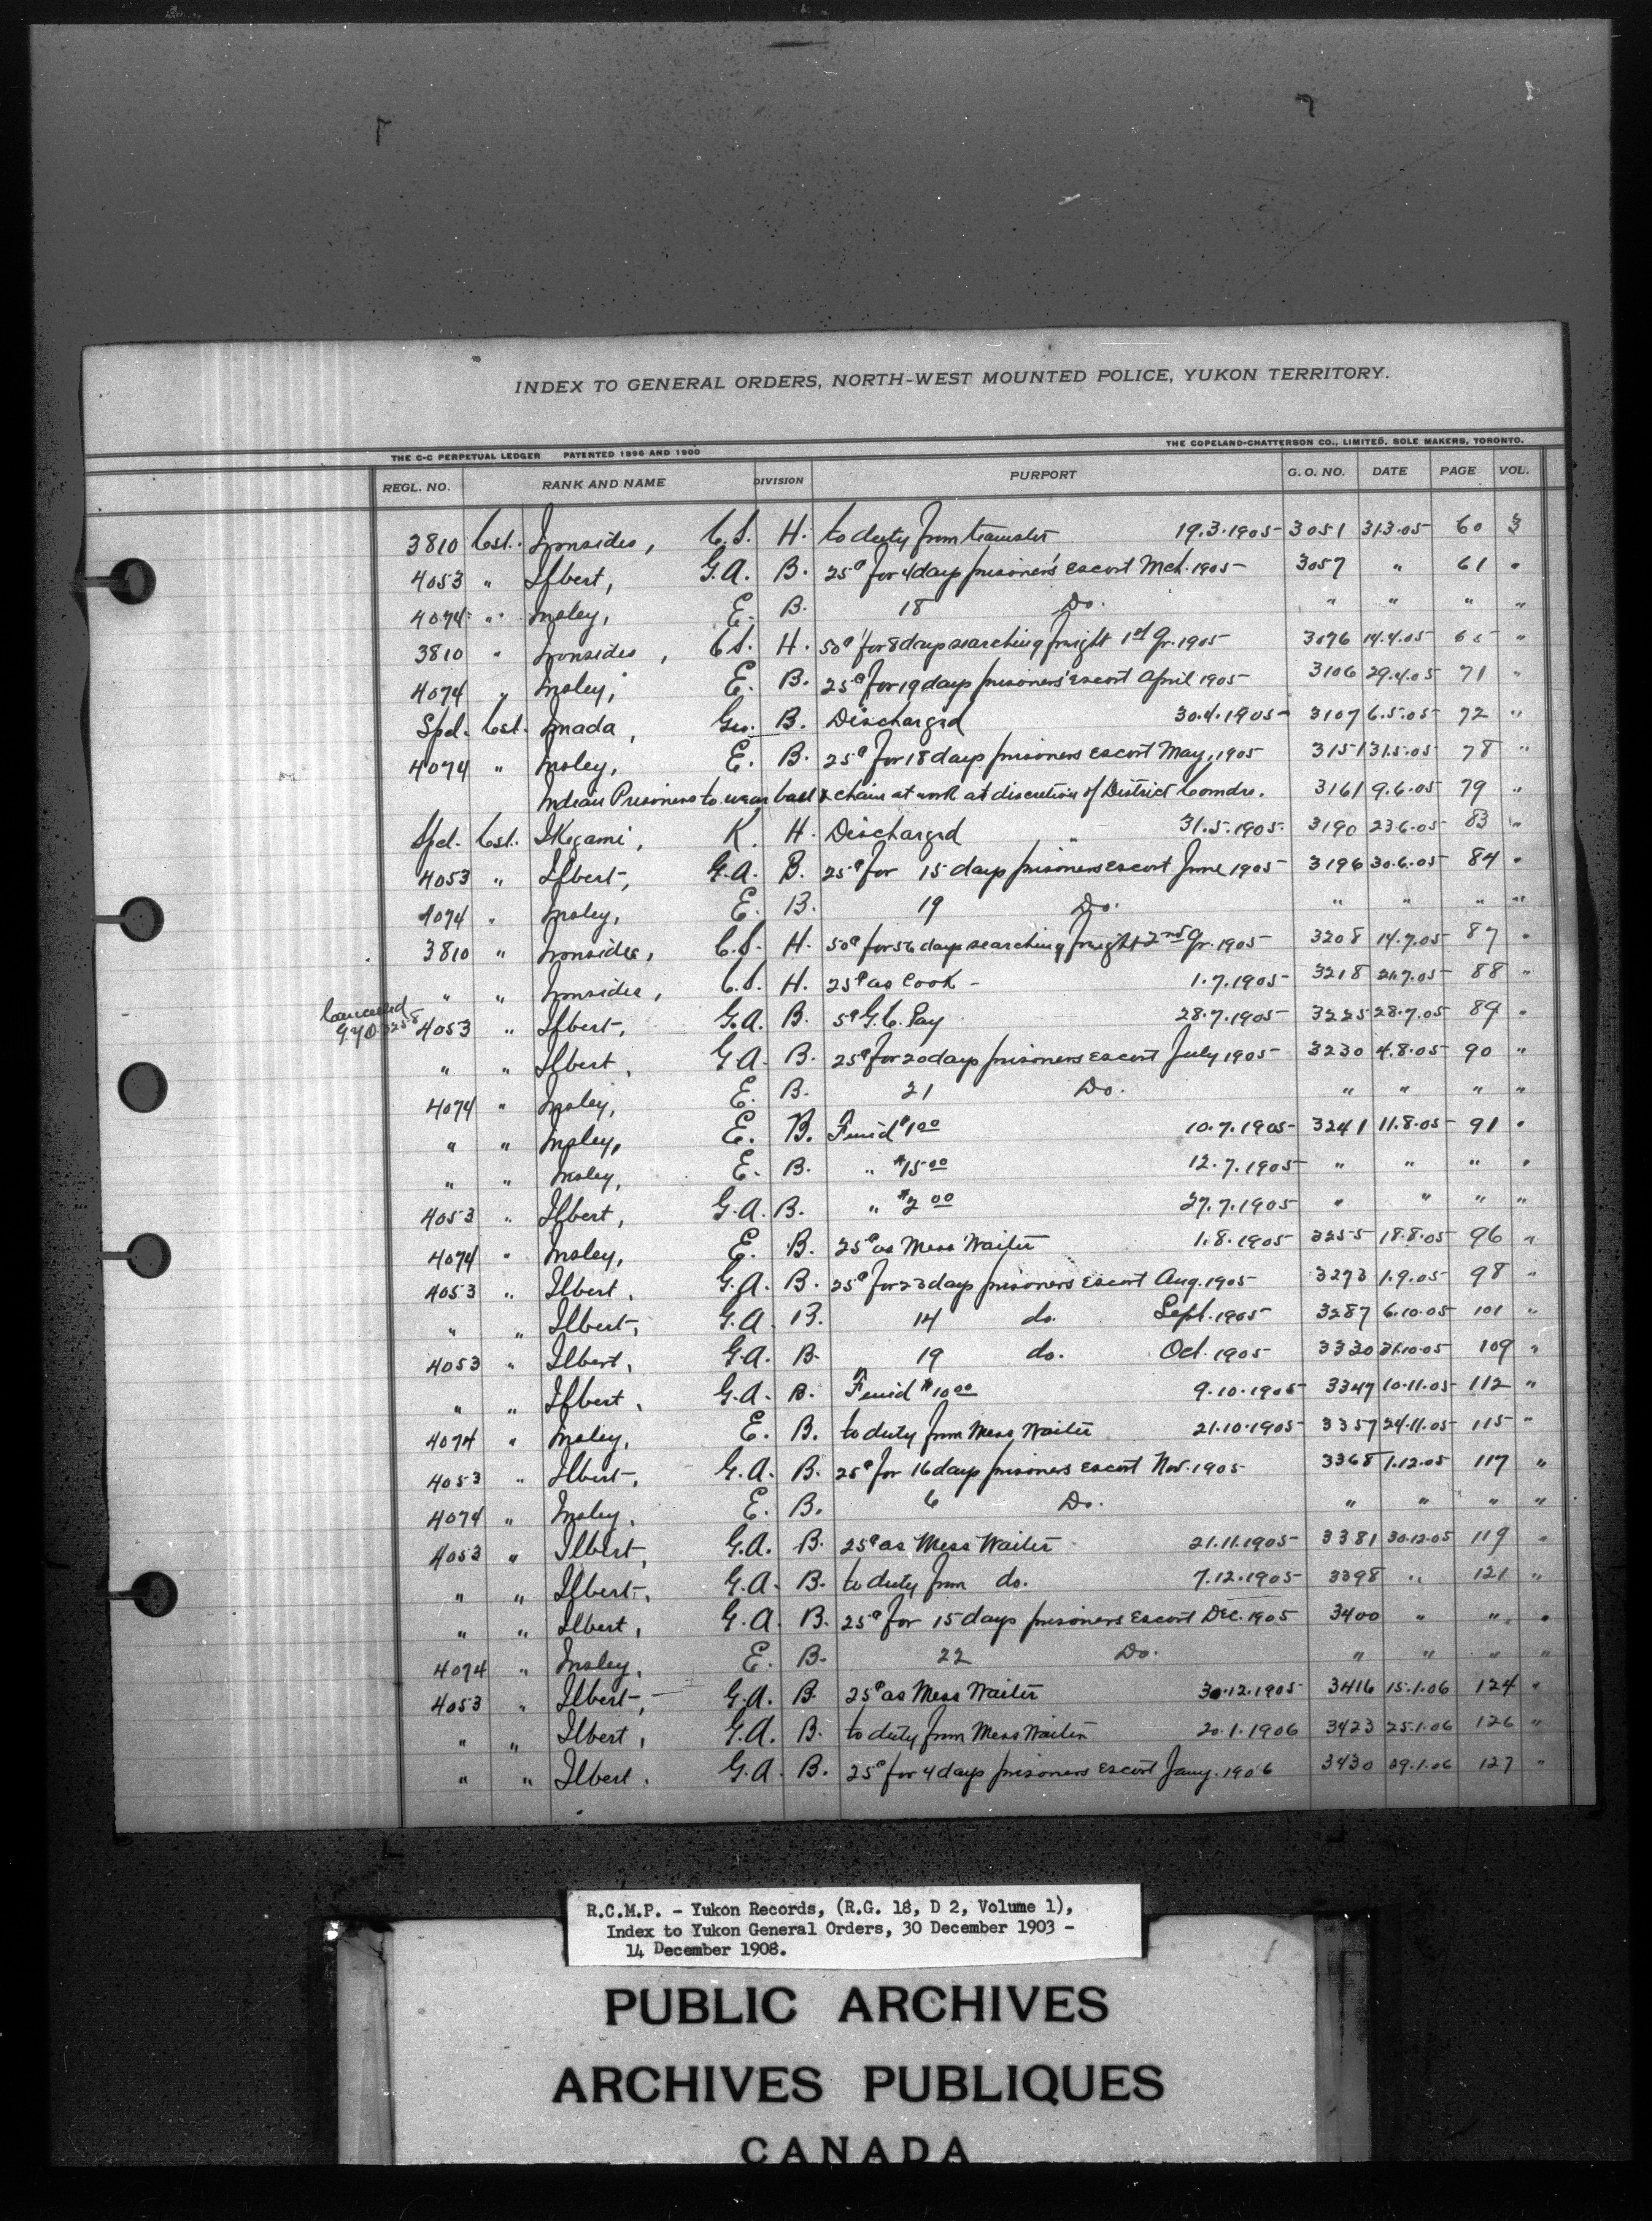 INDEX TO GENERAL ORDERS, NORTH-WEST MOUNTED POLICE, YUKON TERRITORY.
THE C-C PERPETUAL LEDGER PATENTED 1896 AND 1900 THE COPELAND-CHATTERSON CO., LIMITED, SOLE MAKERS, TORONTO.
REGL. NO. RANK AND NAME DIVISION PURPORT G. O. NO. DATE PAGE VOL.
3810 Cst. Ironsides, C.S. H. to duty from teamster 19.3.1905 3051 31.3.05 60 3
4053 " Ilbert, G.A. B. 25¢ for 4 days prisoners' escort Mch. 1905 3057 " 61 "
4074 " Insley, E. B. 18 Do. " " " "
3810 " Ironsides, C.S. H. 50¢ for 8 days searching freight 1st Qr. 1905 3076 14.4.05 65 "
4074 " Insley, E. B. 25¢ for 19 days prisoners' escort April 1905 3106 29.4.05 71 "
Spel. Cst. Imada, Geo. B. Discharged 30.4.1905 3107 6.5.05 72 "
4074 " Insley, E. B. 25¢ for 18 days prisoners escort May, 1905 3151 31.5.05 78 "
Indian Prisoners to wear ball & chain at work at discretion of District Comdrs. 3161 9.6.05 79 "
Spel. Cst. IKegami, K. H. Discharged " 31.5.1905. 3190 23.6.05 83 "
4053 " Ilbert, G.A. B. 25¢ for 15 days prisoners escort June 1905 3196 30.6.05 84 "
4074 " Insley, E. B. 19 Do. " " " "
3810 " Ironsides, C.S. H. 50¢ for 56 days searching freight 2nd Qr. 1905 3208 14.7.05 87 "
" " Ironsides, C.S. H. 25¢ as Cook - 1.7.1905 3218 21.7.05 88 "
Cancelled
G.O. 3258 4053 " Ilbert, G.A. B. 5¢ G.C. Pay 28.7.1905 3225 28.7.05 89 "
" " Ilbert, G.A. B. 25¢ for 20 days prisoners escort July 1905 3230 4.8.05 90 "
4074 " Insley, E. B. 21 Do. " " " "
" " Insley, E. B. Fined $1.00 10.7.1905 3241 11.8.05 91 "
" " Insley, E. B. " $15.00 12.7.1905 " " " "
4053 " Ilbert, G.A. B. " $2.00 27.7.1905 " " " "
4074 " Insley, E. B. 25¢ as Mess Waiter 1.8.1905 3255 18.8.05 96 "
4053 " Ilbert, G.A. B. 25¢ for 23 days prisoners escort Aug. 1905 3273 1.9.05 98 "
" " Ilbert, G.A. B. 14 do. Sept. 1905 3287 6.10.05 101 "
4053 " Ilbert, G.A. B. 19 do. Oct. 1905 3330 31.10.05 109 "
" " Ilbert, G.A. B. Fined $10.00 9.10.1905 3347 10.11.05 112 "
4074 " Insley, E. B. to duty from Mess Waiter 21.10.1905 3357 24.11.05 115 "
4053 " Ilbert, G.A. B. 25¢ for 16 days prisoners escort Nov. 1905 3368 1.12.05 117 "
4074 " Insley, E. B. 6 Do. " " " "
4053 " Ilbert, G.A. B. 25¢ as Mess Waiter 21.11.1905 3381 30.12.05 119 "
" " Ilbert, G.A. B. to duty from do. 7.12.1905 3398 " 121 "
" " Ilbert, G.A. B. 25¢ for 15 days prisoners escort Dec. 1905 3400 " " "
4074 " Insley, E. B. 22 Do. " " " "
4053 " Ilbert, G.A. B. 25¢ as Mess Waiter 30.12.1905 3416 15.1.06 124 "
" " Ilbert, G.A. B. to duty from Mess Waiter 20.1.1906 3423 25.1.06 126 "
" " Ilbert. G.A. B. 25¢ for 4 days prisoners escort Jany. 1906 3430 29.1.06 127 "
R.C.M.P. - Yukon Records, (R.G. 18, D 2, Volume 1),
Index to Yukon General Orders, 30 December 1903 -
14 December 1908.
PUBLIC ARCHIVES
ARCHIVES PUBLIQUES
CANADA